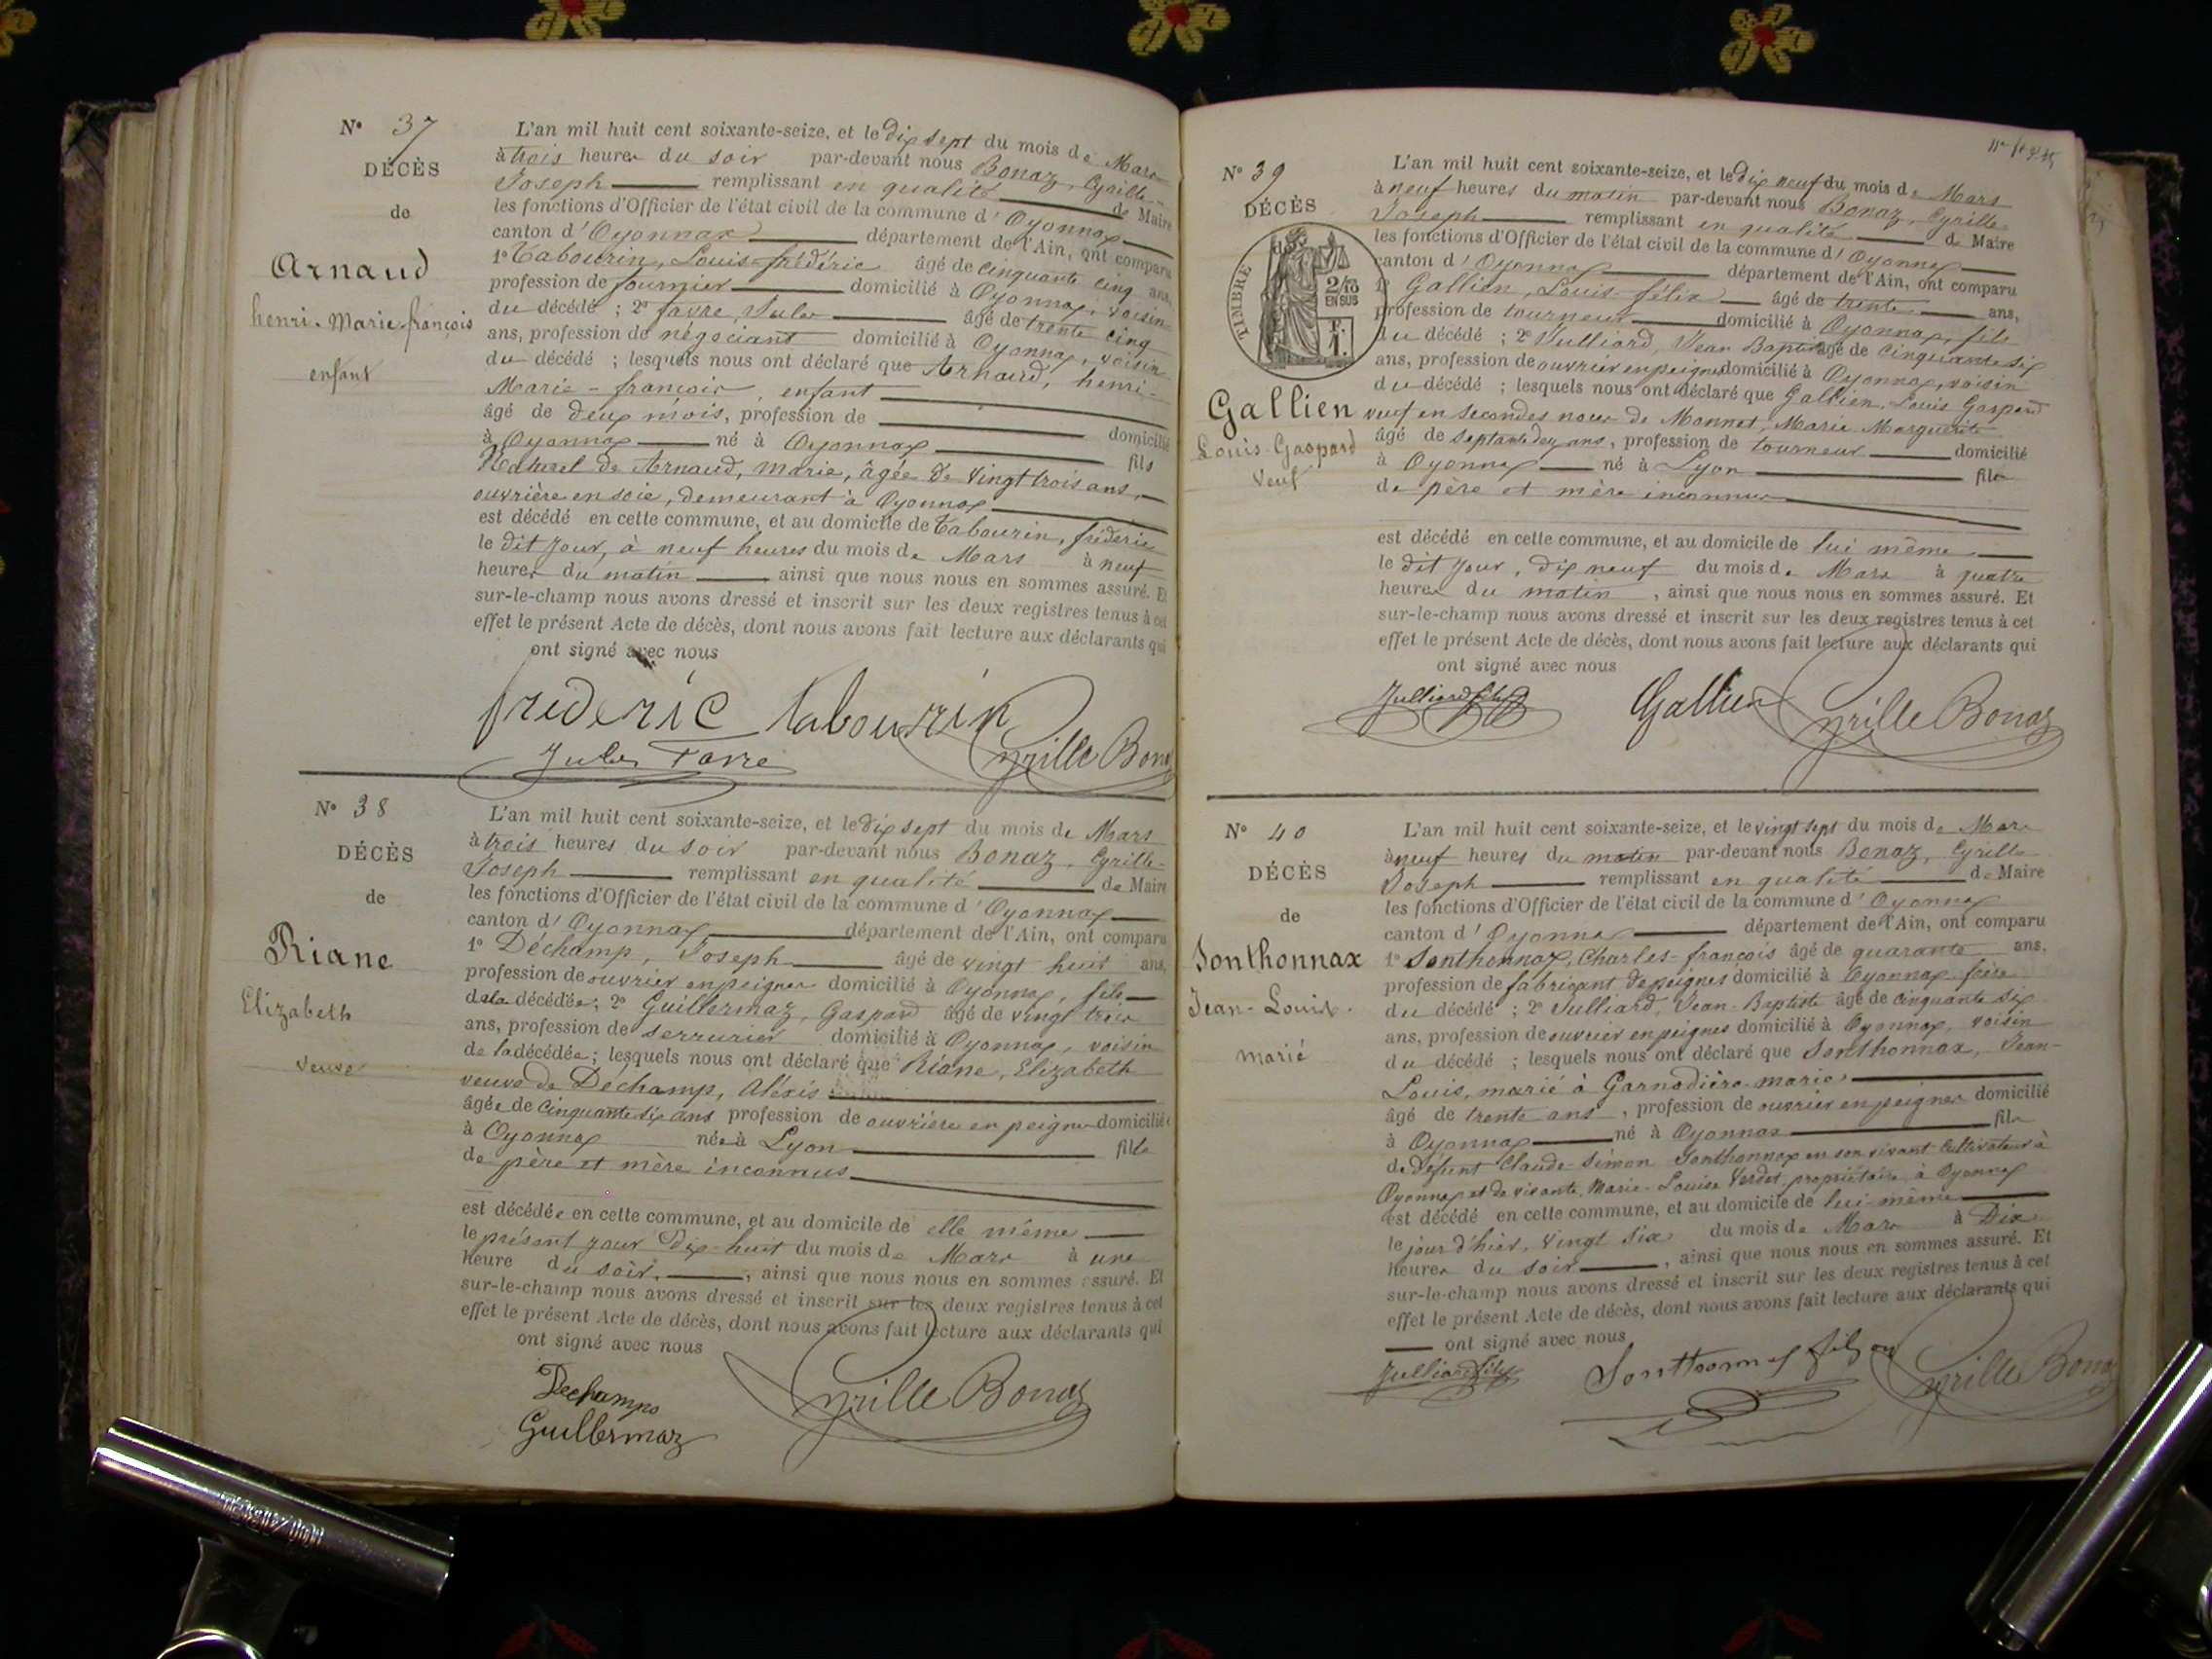 N° 37
DÉCÈS
de
Arnaud
henri-Marie-françois
enfant
L'an mil huit cent soixante-seize, et le dix sept du mois de Mars
à trois heures du soir par-devant nous Bonaz, Cyrille-
Joseph remplissant en qualité de Maire
les fonctions d'Officier de l'état civil de la commune d'Oyonnax
canton d'Oyonnax département de l'Ain, ont comparu
1° Tabourin, Louis-frédéric âgé de cinquante cinq ans,
profession de fournier domicilié à Oyonnax, voisin
du décédé ; 2° favre, Jules âgé de trente cinq
ans, profession de négociant domicilié à Oyonnax, voisin
du décédé ; lesquels nous ont déclaré que Arnaud, henri-
Marie-françois, enfant
âgé de deux mois, profession de domicilié
à Oyonnax né à Oyonnax fils
Naturel de Arnaud, Marie, âgée de vingt trois ans,
ouvrière en soie, demeurant à Oyonnax
est décédé en cette commune, et au domicile de Tabourin, frédéric
le dit jour, à neuf heures du mois de Mars à neuf
heures du matin ainsi que nous nous en sommes assuré. Et
sur-le-champ nous avons dressé et inscrit sur les deux registres tenus à cet
effet le présent Acte de décès, dont nous avons fait lecture aux déclarants qui
ont signé avec nous
frederic tabourin
Jules Favre Cyrille Bonaz
N° 38
DÉCÈS
de
Riane
Elizabeth
veuve
L'an mil huit cent soixante-seize, et le dix sept du mois de Mars
à trois heures du soir par-devant nous Bonaz, Cyrille-
Joseph remplissant en qualité de Maire
les fonctions d'Officier de l'état civil de la commune d'Oyonnax
canton d'Oyonnax département de l'Ain, ont comparu
1° Déchamp, Joseph âgé de vingt huit ans,
profession de ouvrier en peignes domicilié à Oyonnax, fils
de la décédée; 2° Guillermaz, Gaspard âgé de vingt trois
ans, profession de serrurier domicilié à Oyonnax, voisin
de la décédée; lesquels nous ont déclaré que Riane, Elizabeth
veuve de Déchamp, Aléxis
âgée de cinquante six ans profession de ouvrière en peignes domiciliée
à Oyonnax née à Lyon fille
de père et mère inconnus
est décédée en cette commune, et au domicile de elle même
le présent jour Dix-huit du mois de Mars à une
heure du soir, ainsi que nous nous en sommes assuré. Et
sur-le-champ nous avons dressé et inscrit sur les deux registres tenus à cet
effet le présent Acte de décès, dont nous avons fait lecture aux déclarants qui
ont signé avec nous
Dechamps
Guillermaz Cyrille Bonaz
N° 39
DÉCÈS
de
TIMBRE
2/10
EN SUS
F.
1.
Gallien
Louis-Gaspard
veuf
L'an mil huit cent soixante-seize, et le dix neuf du mois de Mars
à neuf heures du matin par-devant nous Bonaz, Cyrille
Joseph remplissant en qualité de Maire
les fonctions d'Officier de l'état civil de la commune d'Oyonnax
canton d'Oyonnax département de l'Ain, ont comparu
1° Gallien, Louis-félix âgé de trente ans,
profession de tourneur domicilié à Oyonnax, fils
du décédé ; 2° Julliard, Jean Baptiste âgé de cinquante six
ans, profession de ouvrier en peignes domicilié à Oyonnax, voisin
du décédé ; lesquels nous ont déclaré que Gallien, Louis Gaspard
veuf en secondes noces de Monnet, Marie Marguerite
âgé de septante deux ans, profession de tourneur domicilié
à Oyonnax né à Lyon fils
de père et mère inconnus
est décédé en cette commune, et au domicile de lui même
le dit jour, dix neuf du mois de Mars à quatre
heures du matin, ainsi que nous nous en sommes assuré. Et
sur-le-champ nous avons dressé et inscrit sur les deux registres tenus à cet
effet le présent Acte de décès, dont nous avons fait lecture aux déclarants qui
ont signé avec nous
Julliard Gallien Cyrille Bonaz
N° 40
DÉCÈS
de
Sonthonnax
Jean-Louis.
marié
L'an mil huit cent soixante-seize, et le vingt sept du mois de Mars
à neuf heures du matin par-devant nous Bonaz, Cyrille
Joseph remplissant en qualité de Maire
les fonctions d'Officier de l'état civil de la commune d'Oyonnax
canton d'Oyonnax département de l'Ain, ont comparu
1° Sonthonnax, Charles-françois âgé de quarante ans,
profession de fabricant de peignes domicilié à Oyonnax frère
du décédé ; 2° Julliard, Jean-Baptiste âgé de cinquante six
ans, profession de ouvrier en peignes domicilié à Oyonnax, voisin
du décédé ; lesquels nous ont déclaré que Sonthonnax, Jean-
Louis, marié à Garnodière marie
âgé de trente ans, profession de ouvrier en peignes domicilié
à Oyonnax né à Oyonnax fils
de défunt Claude-Simon Sonthonnax en son vivant cultivateur à
Oyonnax et de vivante Marie-Louise Verdet, propriétaire, à Oyonnax
est décédé en cette commune, et au domicile de lui-même
le jour d'hier, vingt six du mois de Mars à Dix
heures du soir, ainsi que nous nous en sommes assuré. Et
sur-le-champ nous avons dressé et inscrit sur les deux registres tenus à cet
effet le présent Acte de décès, dont nous avons fait lecture aux déclarants qui
ont signé avec nous
Julliard Sonthonnax Cyrille Bonaz